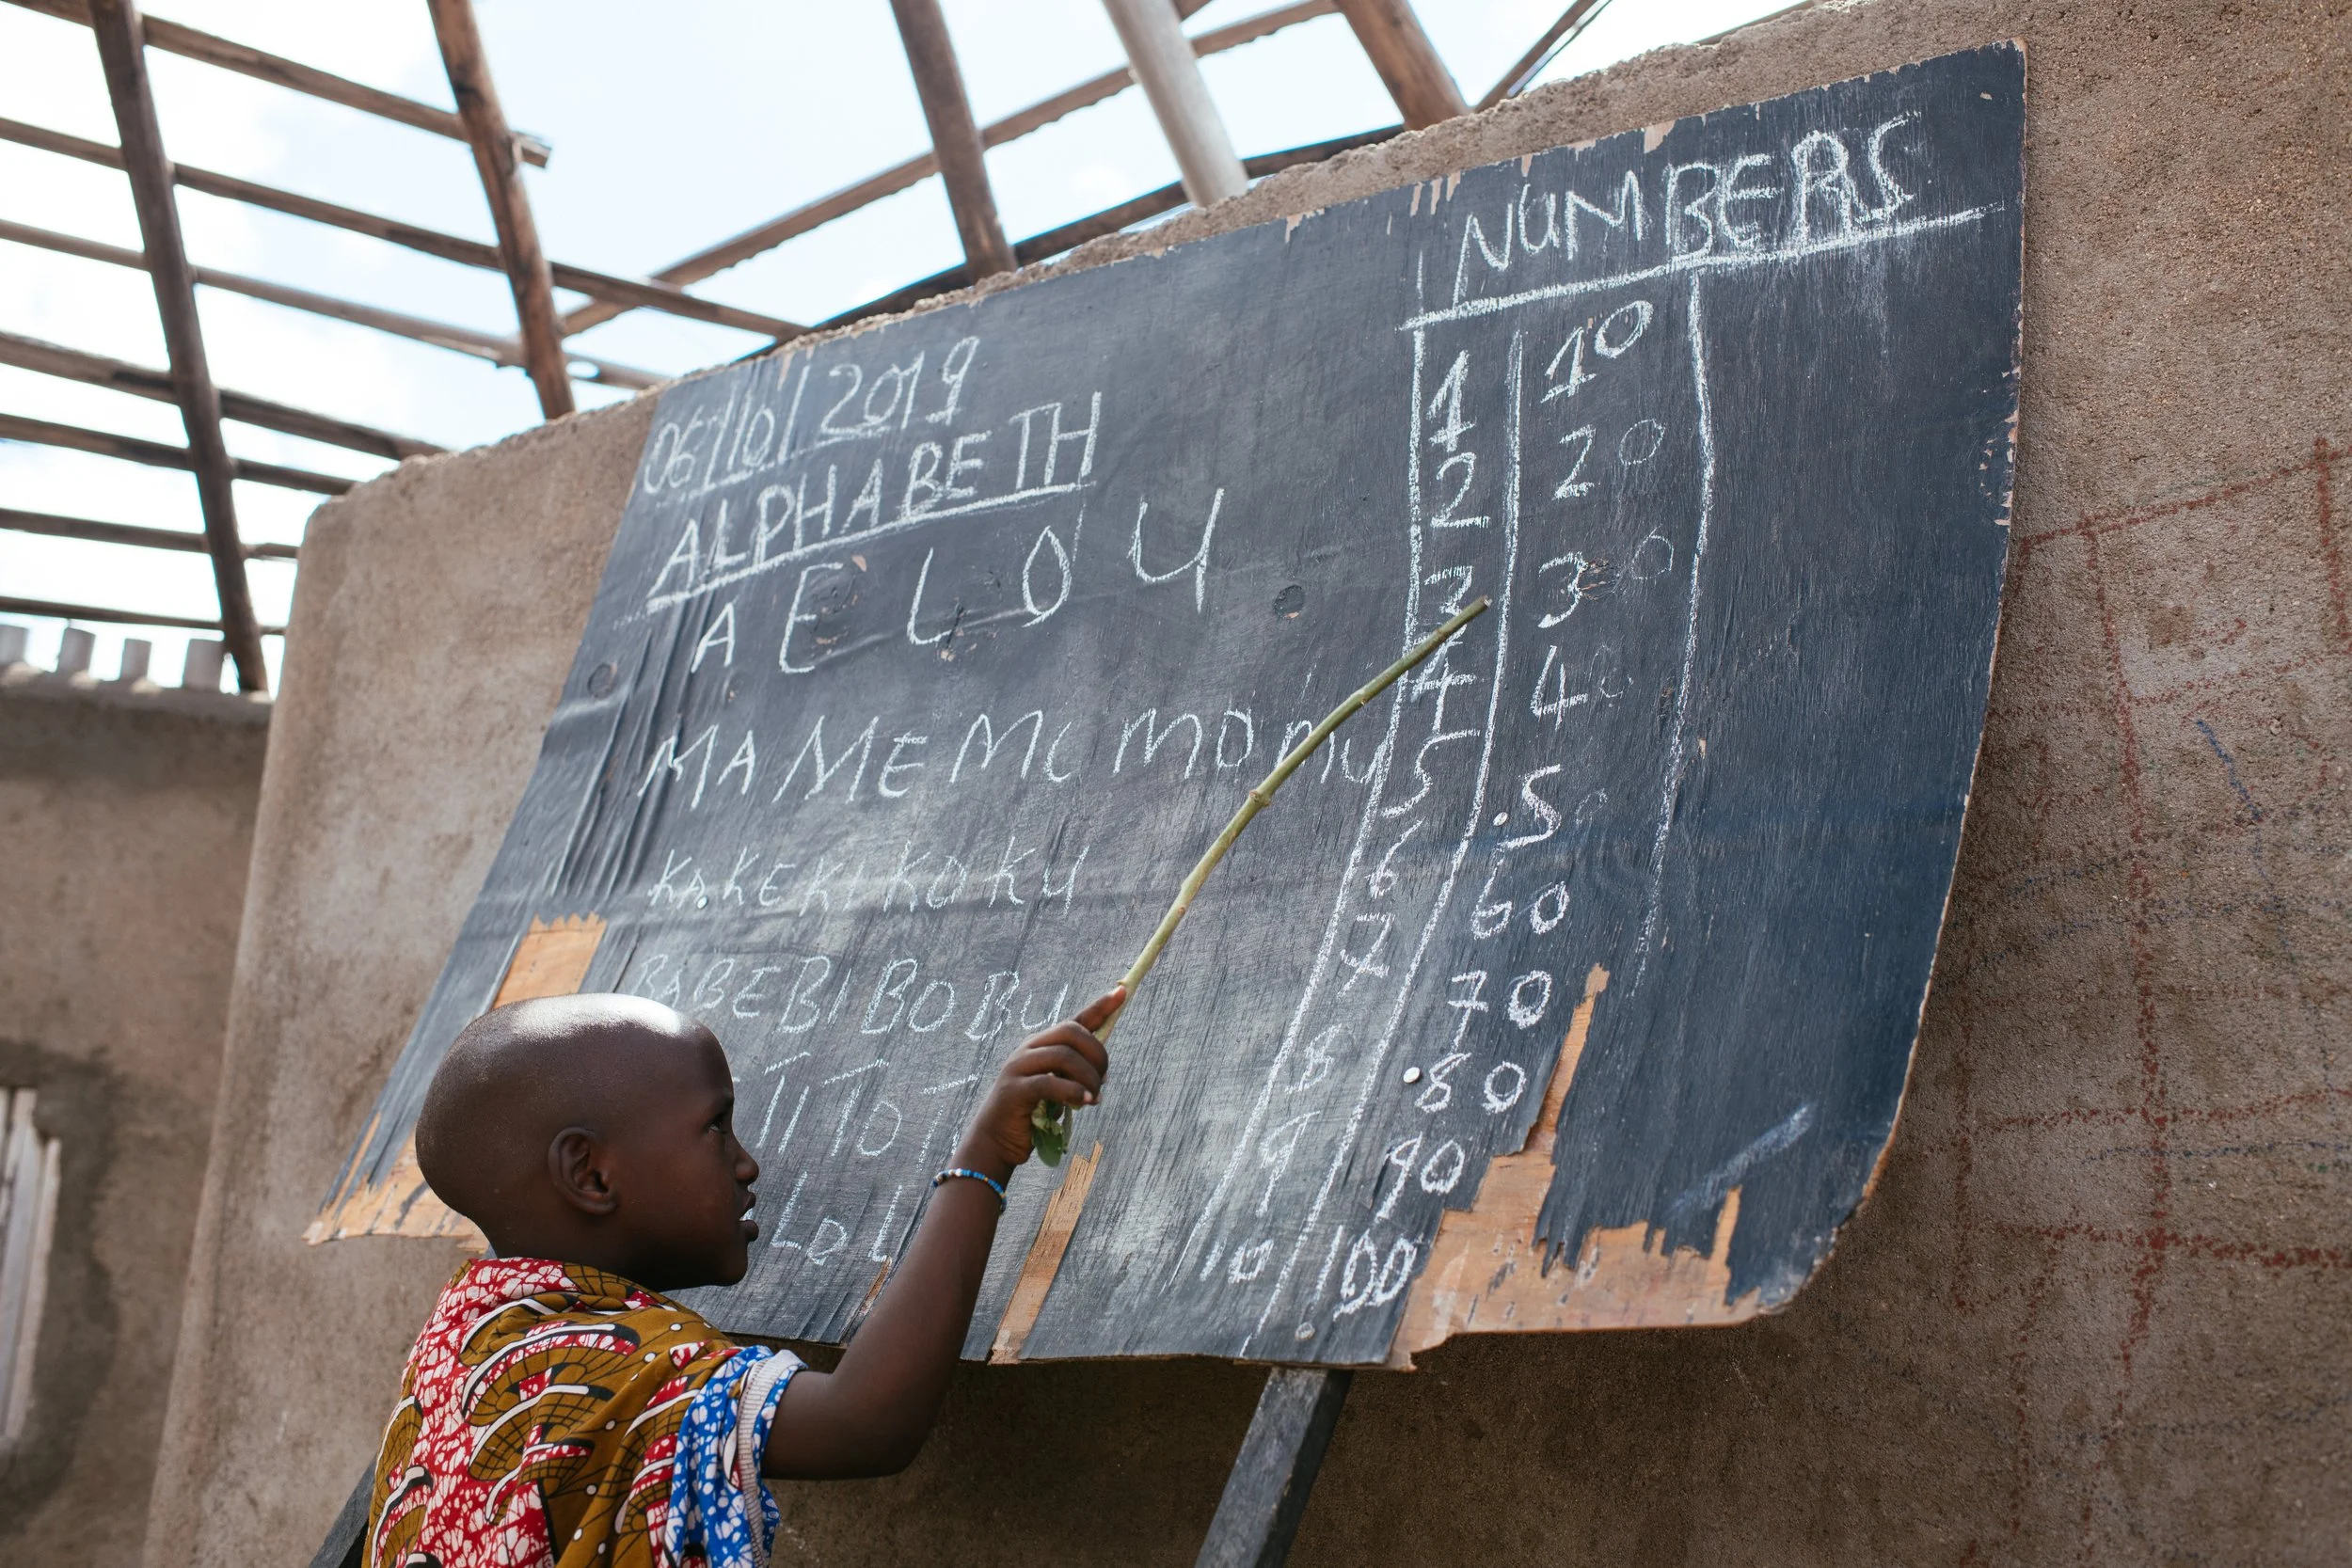 06/10/2019
ALPHABETH
A E I O U
MA ME Mi MO MU
KA KE KI KO KU
BA BE BI BO BU
TI TO T
LO L
NUMBERS
1 10
2 20
3 30
4 40
5 50
6 60
7 70
8 80
9 90
10 100